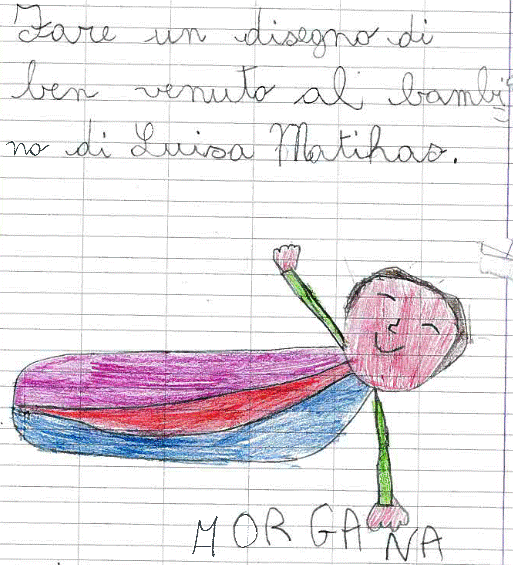 Fare un disegno di
ben venuto al bambi
no di Luisa Matihas.
MORGANA